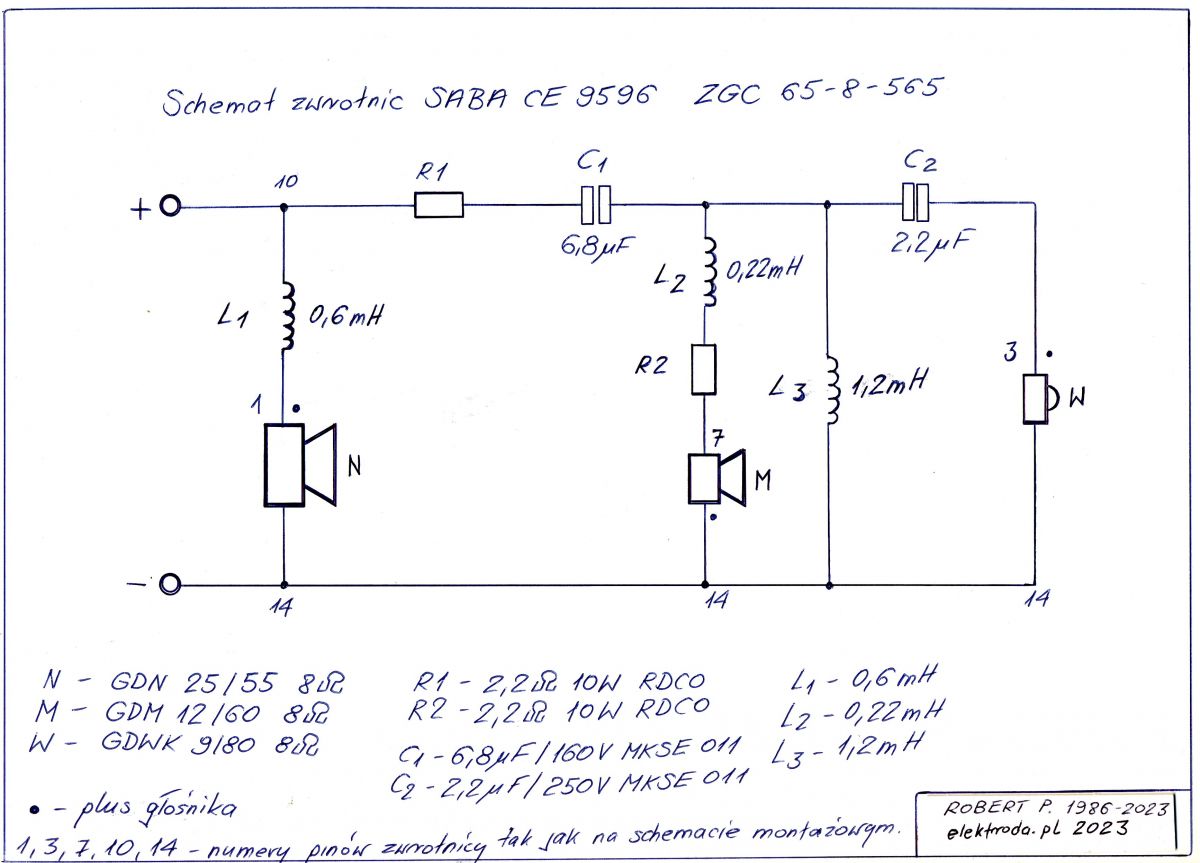 Schemat zwrotnic SABA CE 9596 ZGC 65-8-565
10
R1
C1
C2
+
6,8µF
2,2µF
L2
0,22mH
L1
0,6mH
R2
3
L3
1,2mH
W
1
7
N
M
-
14
14
14
N - GDN 25/55 8Ω
M - GDM 12/60 8Ω
W - GDWK 9/80 8Ω
R1 - 2,2Ω 10W RDCO
R2 - 2,2Ω 10W RDCO
C1 - 6,8µF/160V MKSE 011
C2 - 2,2µF/250V MKSE 011
L1 - 0,6mH
L2 - 0,22mH
L3 - 1,2mH
• - plus głośnika
1, 3, 7, 10, 14 - numery pinów zwrotnicy tak jak na schemacie montażowym.
ROBERT P. 1986-2023
elektroda.pl 2023